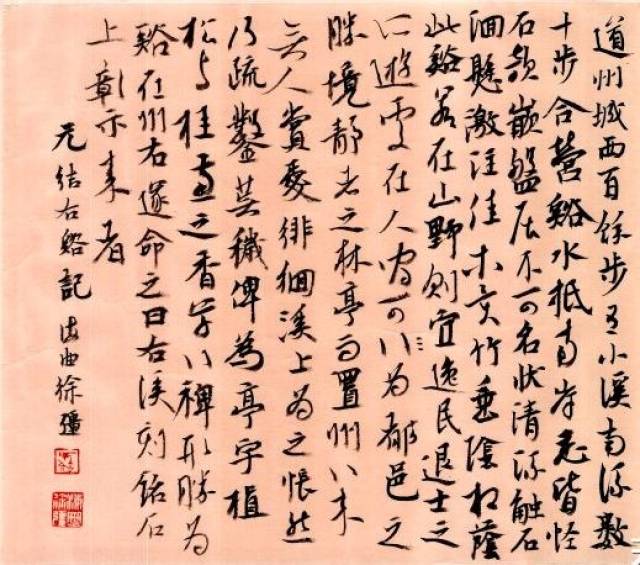 道州城西百餘步有小溪南流數
十步合營谿水抵兩岸悉皆怪
石欹嵌盤屈不可名狀清流觸石
洄懸激注佳木異竹垂陰相蔭
此谿若在山野則宜逸民退士之
所遊處在人間可以為都邑之
勝境靜者之林亭而置州以來
無人賞愛徘徊溪上為之悵然
乃疏鑿蕪穢俾為亭宇植
松與桂兼之香草以裨形勝為
谿在州右遂命之曰右溪刻銘石
上彰示來者
元結右谿記 徐